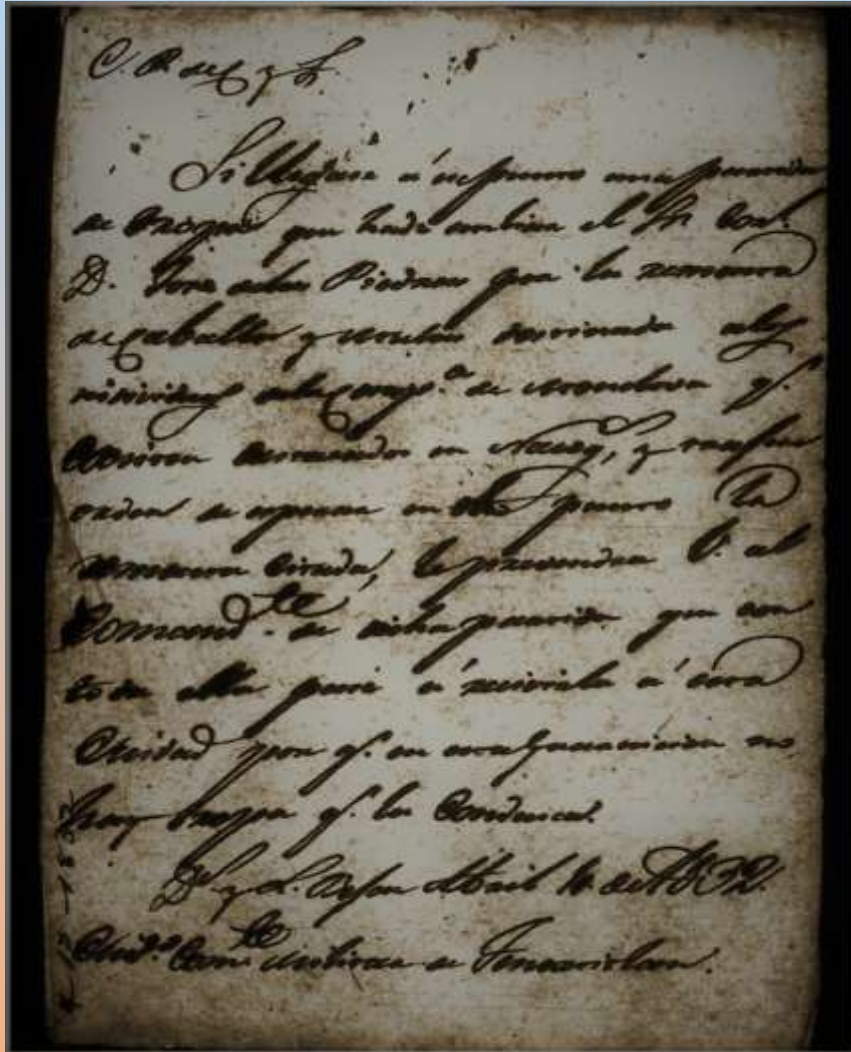 C. P. de C y L.
Si llegáre á ese punto una partida
de tropa que habrá embiar el Sr. Corl.
D. Jose delas Piedras por la remonta
de Caballos y mulas destinada alos
individuos dela Comp.a de q.e
en Nacog, y
orden se espera en ese punto la
remonta citada, le prevendra V. al
Comand.te de dicha partida que con
toda ella pase á recivirla á esta
Ciudad por q.e en esta guarnicion no
hay tropa q.e la conduzca.
D.s y L. Bejar Abril de 1832.
Ciud.o Com.te Militar de Tenoxtitlan.